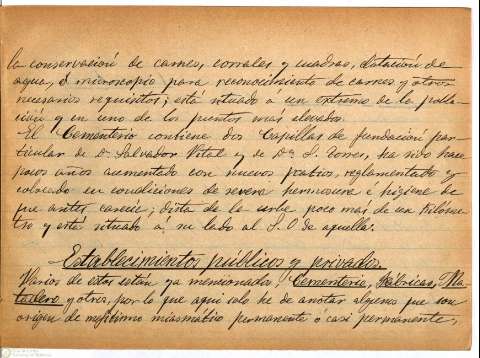 la conservación de carnes, corrales y cuadras, dotación de
agua, d microscopio para reconocimiento de carnes y otros
necesarios requisitos; está situado a un extremo de la pobla-
ción y en uno de los puntos mas elevados.
El Cementerio contiene dos Capillas de fundación par-
ticular de Dn Salvador Vital y de Dn J. Torres, ha sido hace
pocos años aumentado con nuevos patios, reglamentado y
colocado en condiciones de severa hermosura é higiene de
que antes carecia; dista de la urbe, poco más de un kilóme-
tro y está situado a, su lado al S.O de aquella.
Establecimientos públicos y privados
Varios de estos estan ya mencionados, Cementerio, Fábricas, Ma-
tadero y otros, por lo que aqui solo he de anotar algunos que son
origen de mefitismo miasmático permanente ó casi permanente,